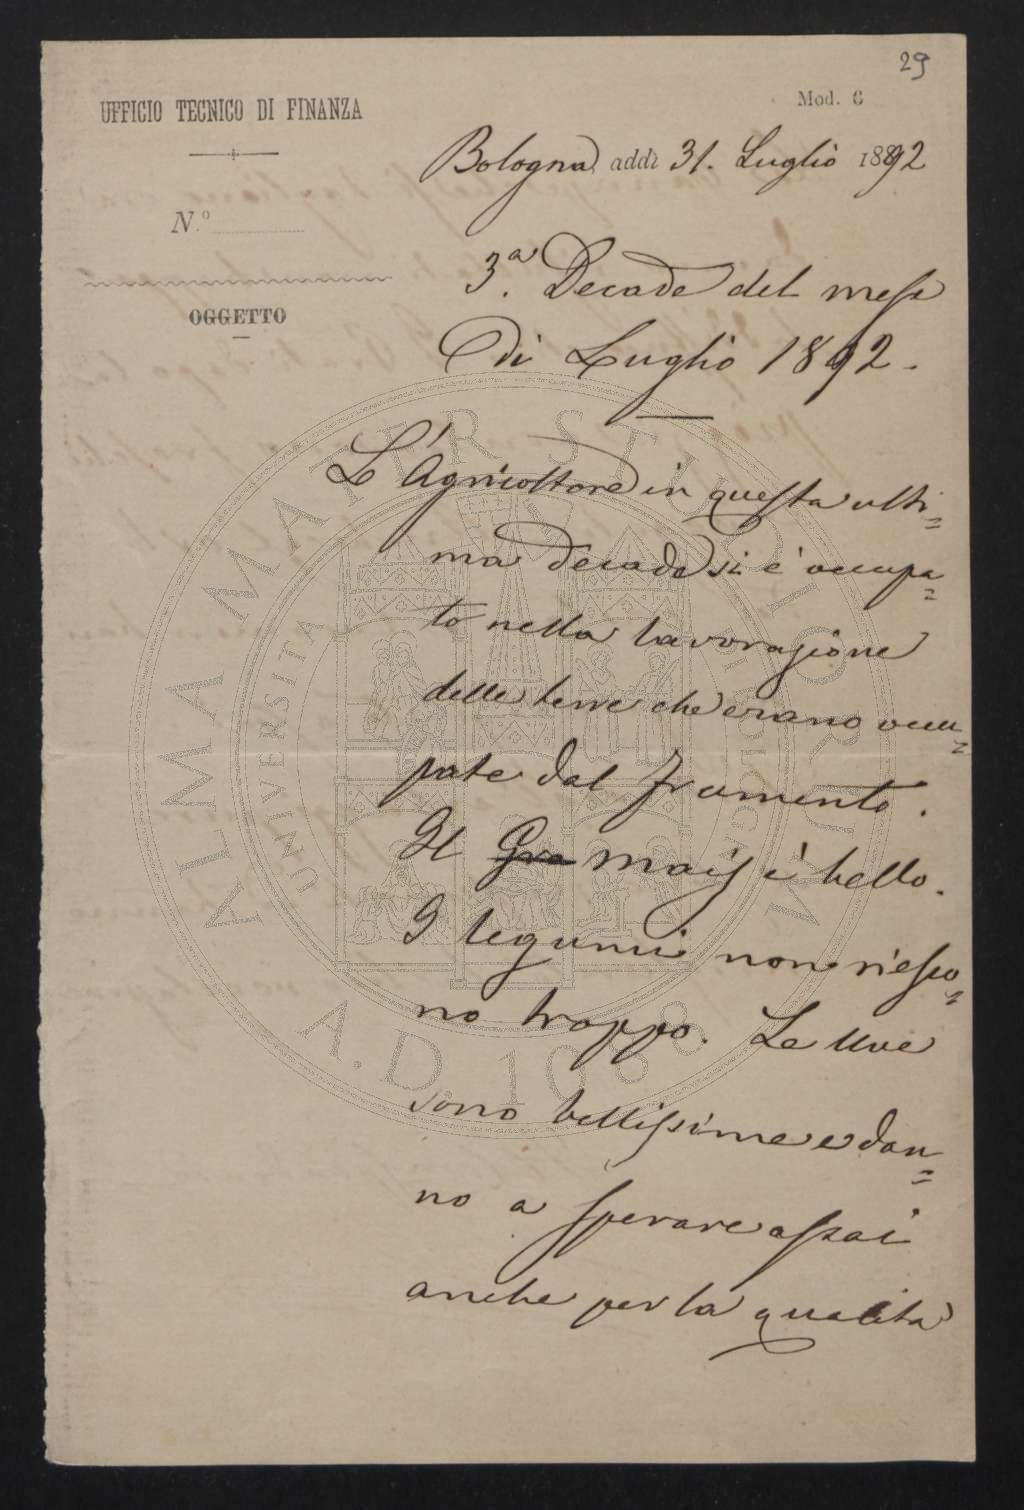 29
Mod. 6
UFFICIO TECNICO DI FINANZA
Bologna addì 31. Luglio 1892
N.º
3.ª Decade del mese
OGGETTO
Di Luglio 1892.
L'Agricoltore in questa ulti=
ma decade si è occupa=
to nella lavorazione
delle terre che erano occu=
pate dal frumento.
Il Gra mais è bello.
I legumi non riesco=
no troppo. Le Uve
sono bellissime e dan=
no a sperare assai
anche per la qualità
ALMA MATER STUDIORUM
UNIVERSITÀ DI BOLOGNA
A.D. 1088